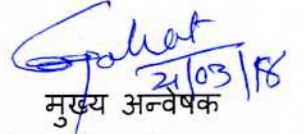 21/03/18
मुख्य अन्वेषक